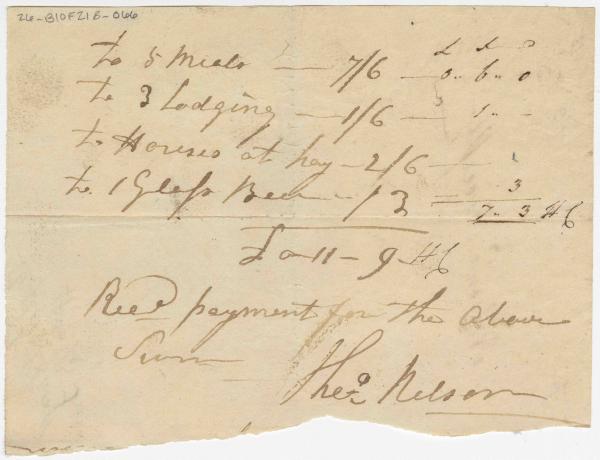 26-B10F21E-066
£ s D
to 5 Meals — 7/6 — 0.. 6.. 0
to 3 Lodging — 1/6 — 1.. -
to Horses at hay — 2/6 —
to 1 Glass Beer — /3 = 3
7.. 3 H C
£ 0 - 11 - 9 - H C
Recd payment for the above
Sum
Theo Nelson